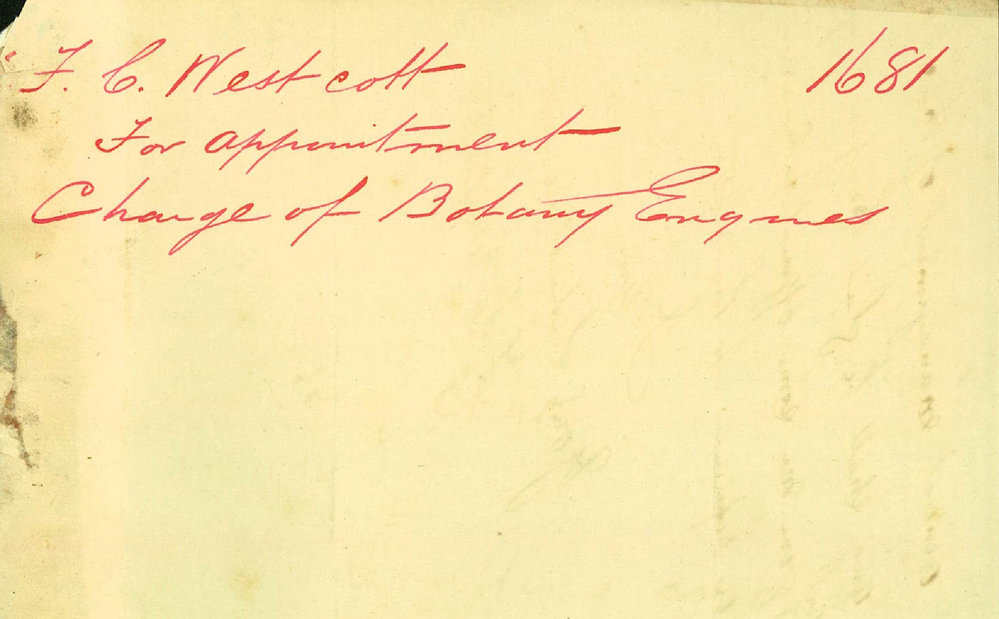 F. C. Westcott 1681
For appointment
Charge of Botany Engines